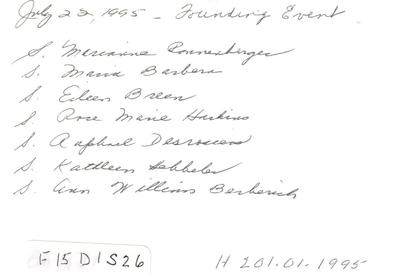 July 22, 1995 - Founding Event
S. Marianne Ronnenberger
S. Maria Barbera
S. Eileen Breen
S. Rose Marie Harkins
S. Raphael Desrosiers
S. Kathleen Hebbeler
S. Ann William Berberich
F15D1S26
H 201.01.1995